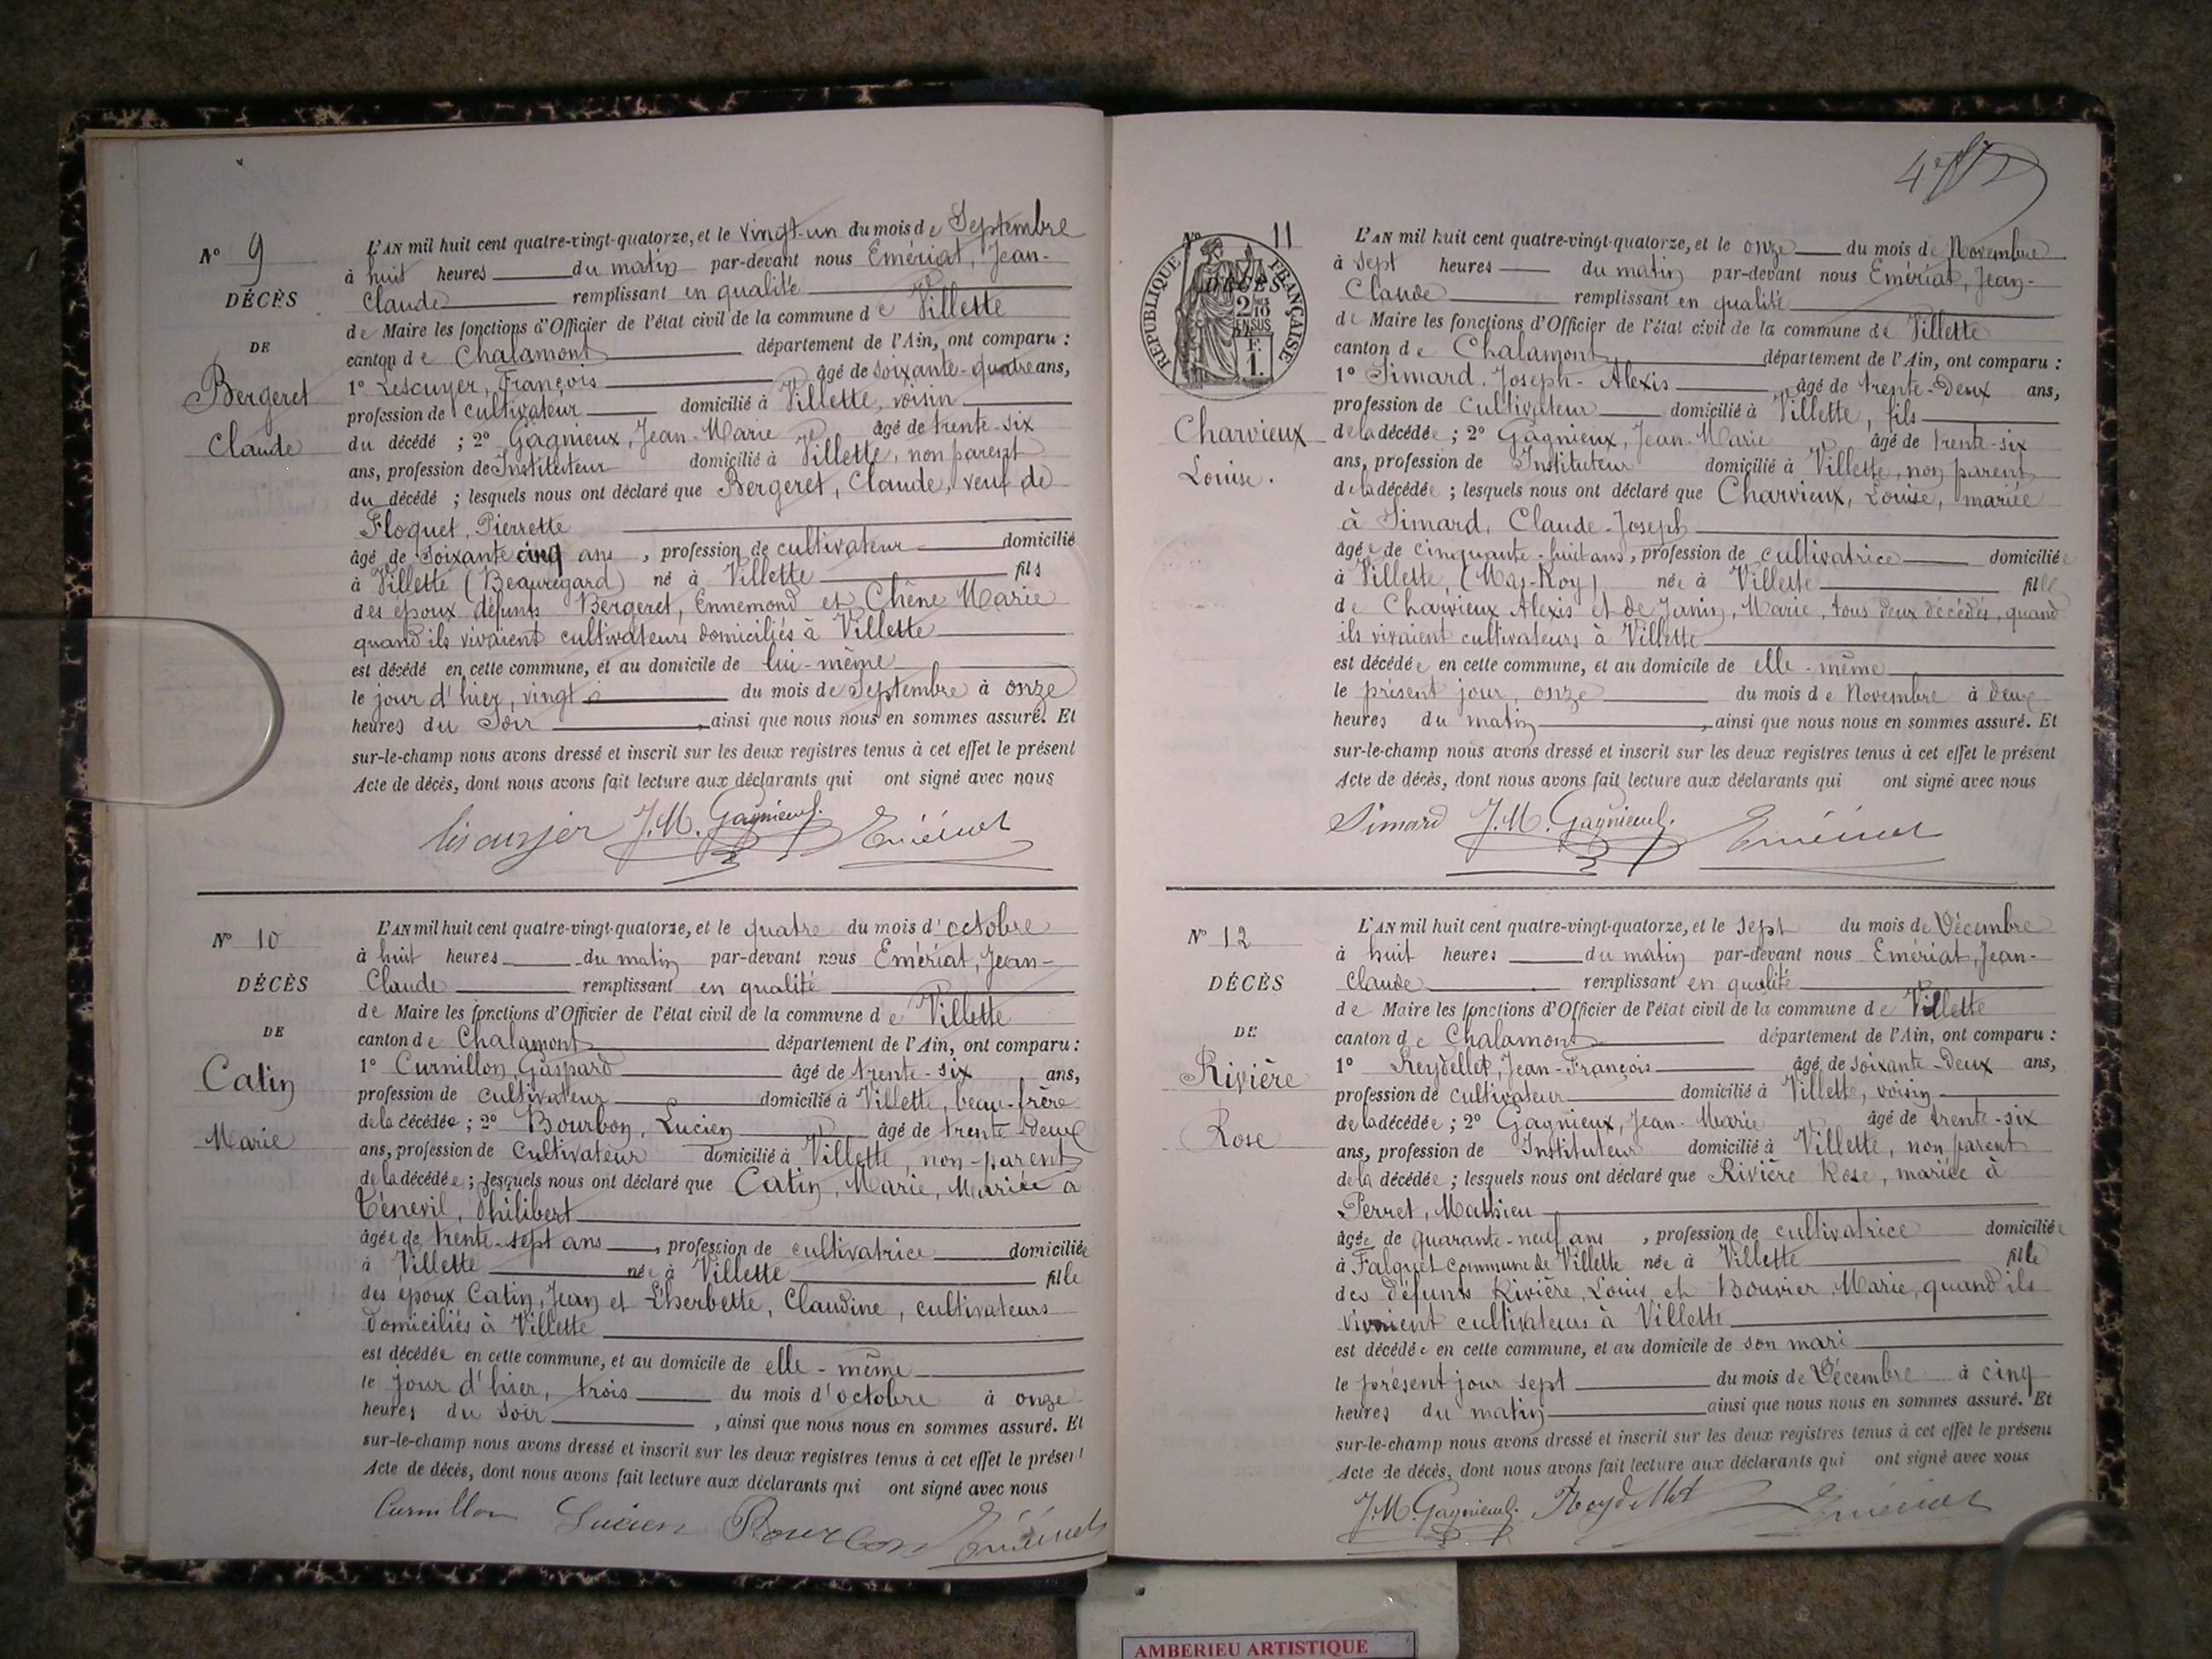 N° 9
DÉCÈS
DE
Bergeret
Claude
L'AN mil huit cent quatre-vingt-quatorze, et le vingt-un du mois de Septembre
à huit heures du matin par-devant nous Emériat, Jean-
Claude remplissant en qualité
de Maire les fonctions d'Officier de l'état civil de la commune de Villette
canton de Chalamont département de l'Ain, ont comparu :
1° Lescuyer, François âgé de soixante-quatre ans,
profession de cultivateur domicilié à Villette, voisin
du décédé ; 2° Gagnieux, Jean-Marie âgé de trente-six
ans, profession de Instituteur domicilié à Villette, non parent
du décédé ; lesquels nous ont déclaré que Bergeret, Claude, veuf de
Floquet, Pierrette
âgé de soixante cinq ans, profession de cultivateur domicilié
à Villette (Beauregard) né à Villette fils
des époux défunts Bergeret, Ennemond et Chêne Marie
quand ils vivaient cultivateurs domiciliés à Villette
est décédé en cette commune, et au domicile de lui-même
le jour d'hier, vingt du mois de Septembre à onze
heures du Soir, ainsi que nous nous en sommes assuré. Et
sur-le-champ nous avons dressé et inscrit sur les deux registres tenus à cet effet le présent
Acte de décès, dont nous avons fait lecture aux déclarants qui ont signé avec nous
J.M. Gagnieux. Emériat
N° 10
DÉCÈS
DE
Catin
Marie
L'AN mil huit cent quatre-vingt-quatorze, et le quatre du mois d'octobre
à huit heures du matin par-devant nous Emériat, Jean-
Claude remplissant en qualité
de Maire les fonctions d'Officier de l'état civil de la commune de Villette
canton de Chalamont département de l'Ain, ont comparu :
1° Curnillon, Gaspard âgé de trente-six ans,
profession de cultivateur domicilié à Villette, beau-frère
de la décédée ; 2° Bourbon, Lucien âgé de trente-deux
ans, profession de Cultivateur domicilié à Villette, non-parent
de la décédée ; lesquels nous ont déclaré que Catin, Marie, Mariée à
Philibert
âgée de trente-sept ans, profession de cultivatrice domiciliée
à Villette née à Villette fille
des époux Catin, Jean et Lherbette, Claudine, cultivateurs
domiciliés à Villette
est décédée en cette commune, et au domicile de elle-même
le jour d'hier, trois du mois d'octobre à onze
heures du soir, ainsi que nous nous en sommes assuré. Et
sur-le-champ nous avons dressé et inscrit sur les deux registres tenus à cet effet le présent
Acte de décès, dont nous avons fait lecture aux déclarants qui ont signé avec nous
Curnillon Lucien Bourbon Emériat
N° 11
RÉPUBLIQUE FRANÇAISE
DÉCÈS
2/10 EN SUS
DE
F.
1.
Charvieux
Louise.
L'AN mil huit cent quatre-vingt-quatorze, et le onze du mois de Novembre
à sept heures du matin par-devant nous Emériat, Jean-
Claude remplissant en qualité
de Maire les fonctions d'Officier de l'état civil de la commune de Villette
canton de Chalamont département de l'Ain, ont comparu :
1° Simard, Joseph-Alexis âgé de trente-deux ans,
profession de Cultivateur domicilié à Villette, fils
de la décédée ; 2° Gagnieux, Jean-Marie âgé de trente-six
ans, profession de Instituteur domicilié à Villette, non parent
de la décédée ; lesquels nous ont déclaré que Charvieux, Louise, mariée
à Simard, Claude-Joseph
âgée de cinquante-huit ans, profession de cultivatrice domiciliée
à Villette, (Mas-Roy) née à Villette fille
de Charvieux Alexis et de Janin, Marie, tous deux décédés, quand
ils vivaient cultivateurs à Villette
est décédée en cette commune, et au domicile de elle-même
le présent jour, onze du mois de Novembre à deux
heures du matin, ainsi que nous nous en sommes assuré. Et
sur-le-champ nous avons dressé et inscrit sur les deux registres tenus à cet effet le présent
Acte de décès, dont nous avons fait lecture aux déclarants qui ont signé avec nous
Simard J.M. Gagnieux. Emériat
N° 12
DÉCÈS
DE
Rivière
Rose
L'AN mil huit cent quatre-vingt-quatorze, et le sept du mois de Décembre
à huit heures du matin par-devant nous Emériat, Jean-
Claude remplissant en qualité
de Maire les fonctions d'Officier de l'état civil de la commune de Villette
canton de Chalamont département de l'Ain, ont comparu :
1° Reydellet, Jean-François âgé de soixante-deux ans,
profession de cultivateur domicilié à Villette, voisin
de la décédée ; 2° Gagnieux, Jean-Marie âgé de trente-six
ans, profession de Instituteur domicilié à Villette, non parent
de la décédée ; lesquels nous ont déclaré que Rivière Rose, mariée à
Perret, Mathieu
âgée de quarante-neuf ans, profession de cultivatrice domiciliée
à Falquet commune de Villette née à Villette fille
des défunts Rivière, Louis, et Bouvier Marie, quand ils
vivaient cultivateurs à Villette
est décédée en cette commune, et au domicile de son mari
le présent jour sept du mois de Décembre à cinq
heures du matin ainsi que nous nous en sommes assuré. Et
sur-le-champ nous avons dressé et inscrit sur les deux registres tenus à cet effet le présent
Acte de décès, dont nous avons fait lecture aux déclarants qui ont signé avec nous
J.M. Gagnieux. Reydellet Emériat
AMBERIEU ARTISTIQUE